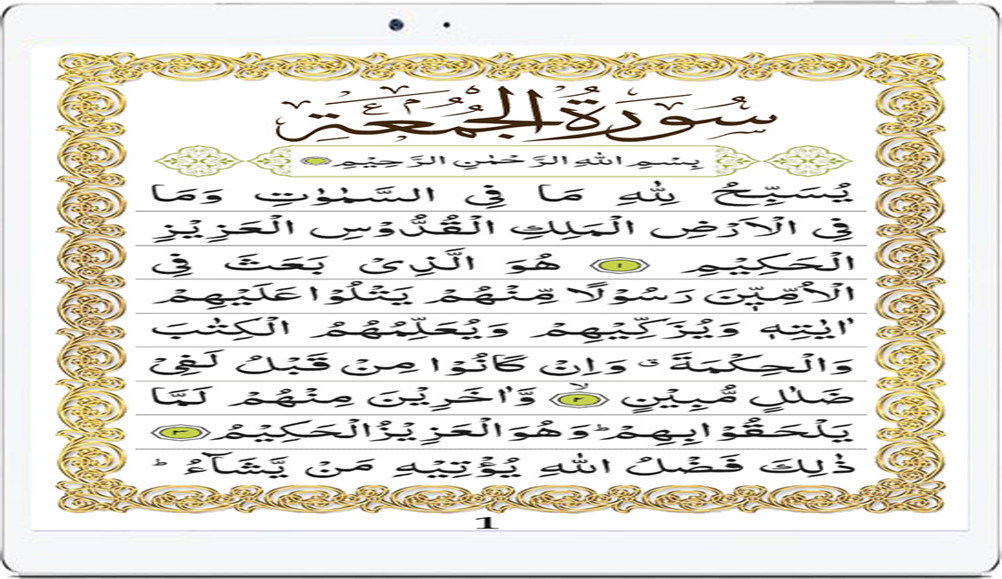 سُورَةُ الْجُمُعَةِ
بِسْمِ اللهِ الرَّحْمٰنِ الرَّحِيْمِ
يُسَبِّحُ لِلّٰهِ مَا فِي السَّمٰوٰتِ وَمَا
فِي الْاَرْضِ الْمَلِكِ الْقُدُّوْسِ الْعَزِيْزِ
الْحَكِيْمِ ۝۱ هُوَ الَّذِيْ بَعَثَ فِي
الْاُمِّيّٖنَ رَسُوْلًا مِّنْهُمْ يَتْلُوْا عَلَيْهِمْ
اٰيٰتِهٖ وَيُزَكِّيْهِمْ وَيُعَلِّمُهُمُ الْكِتٰبَ
وَالْحِكْمَةَ ۗ وَاِنْ كَانُوْا مِنْ قَبْلُ لَفِيْ
ضَلٰلٍ مُّبِيْنٍ ۝۲ۙ وَّاٰخَرِيْنَ مِنْهُمْ لَمَّا
يَلْحَقُوْا بِهِمْ ؕ وَهُوَ الْعَزِيْزُ الْحَكِيْمُ ۝۳
ذٰلِكَ فَضْلُ اللهِ يُؤْتِيْهِ مَنْ يَّشَآءُ ؕ
1